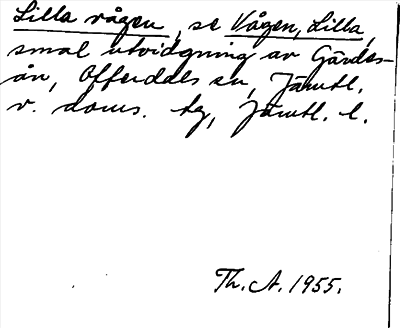 Lilla vågen, se Vågen, Lilla,
smal utvidgning av Gärdes-
ån, Offerdals sn, Jämtl.
v. doms. tg, Jämtl. l.
Th. A. 1955.